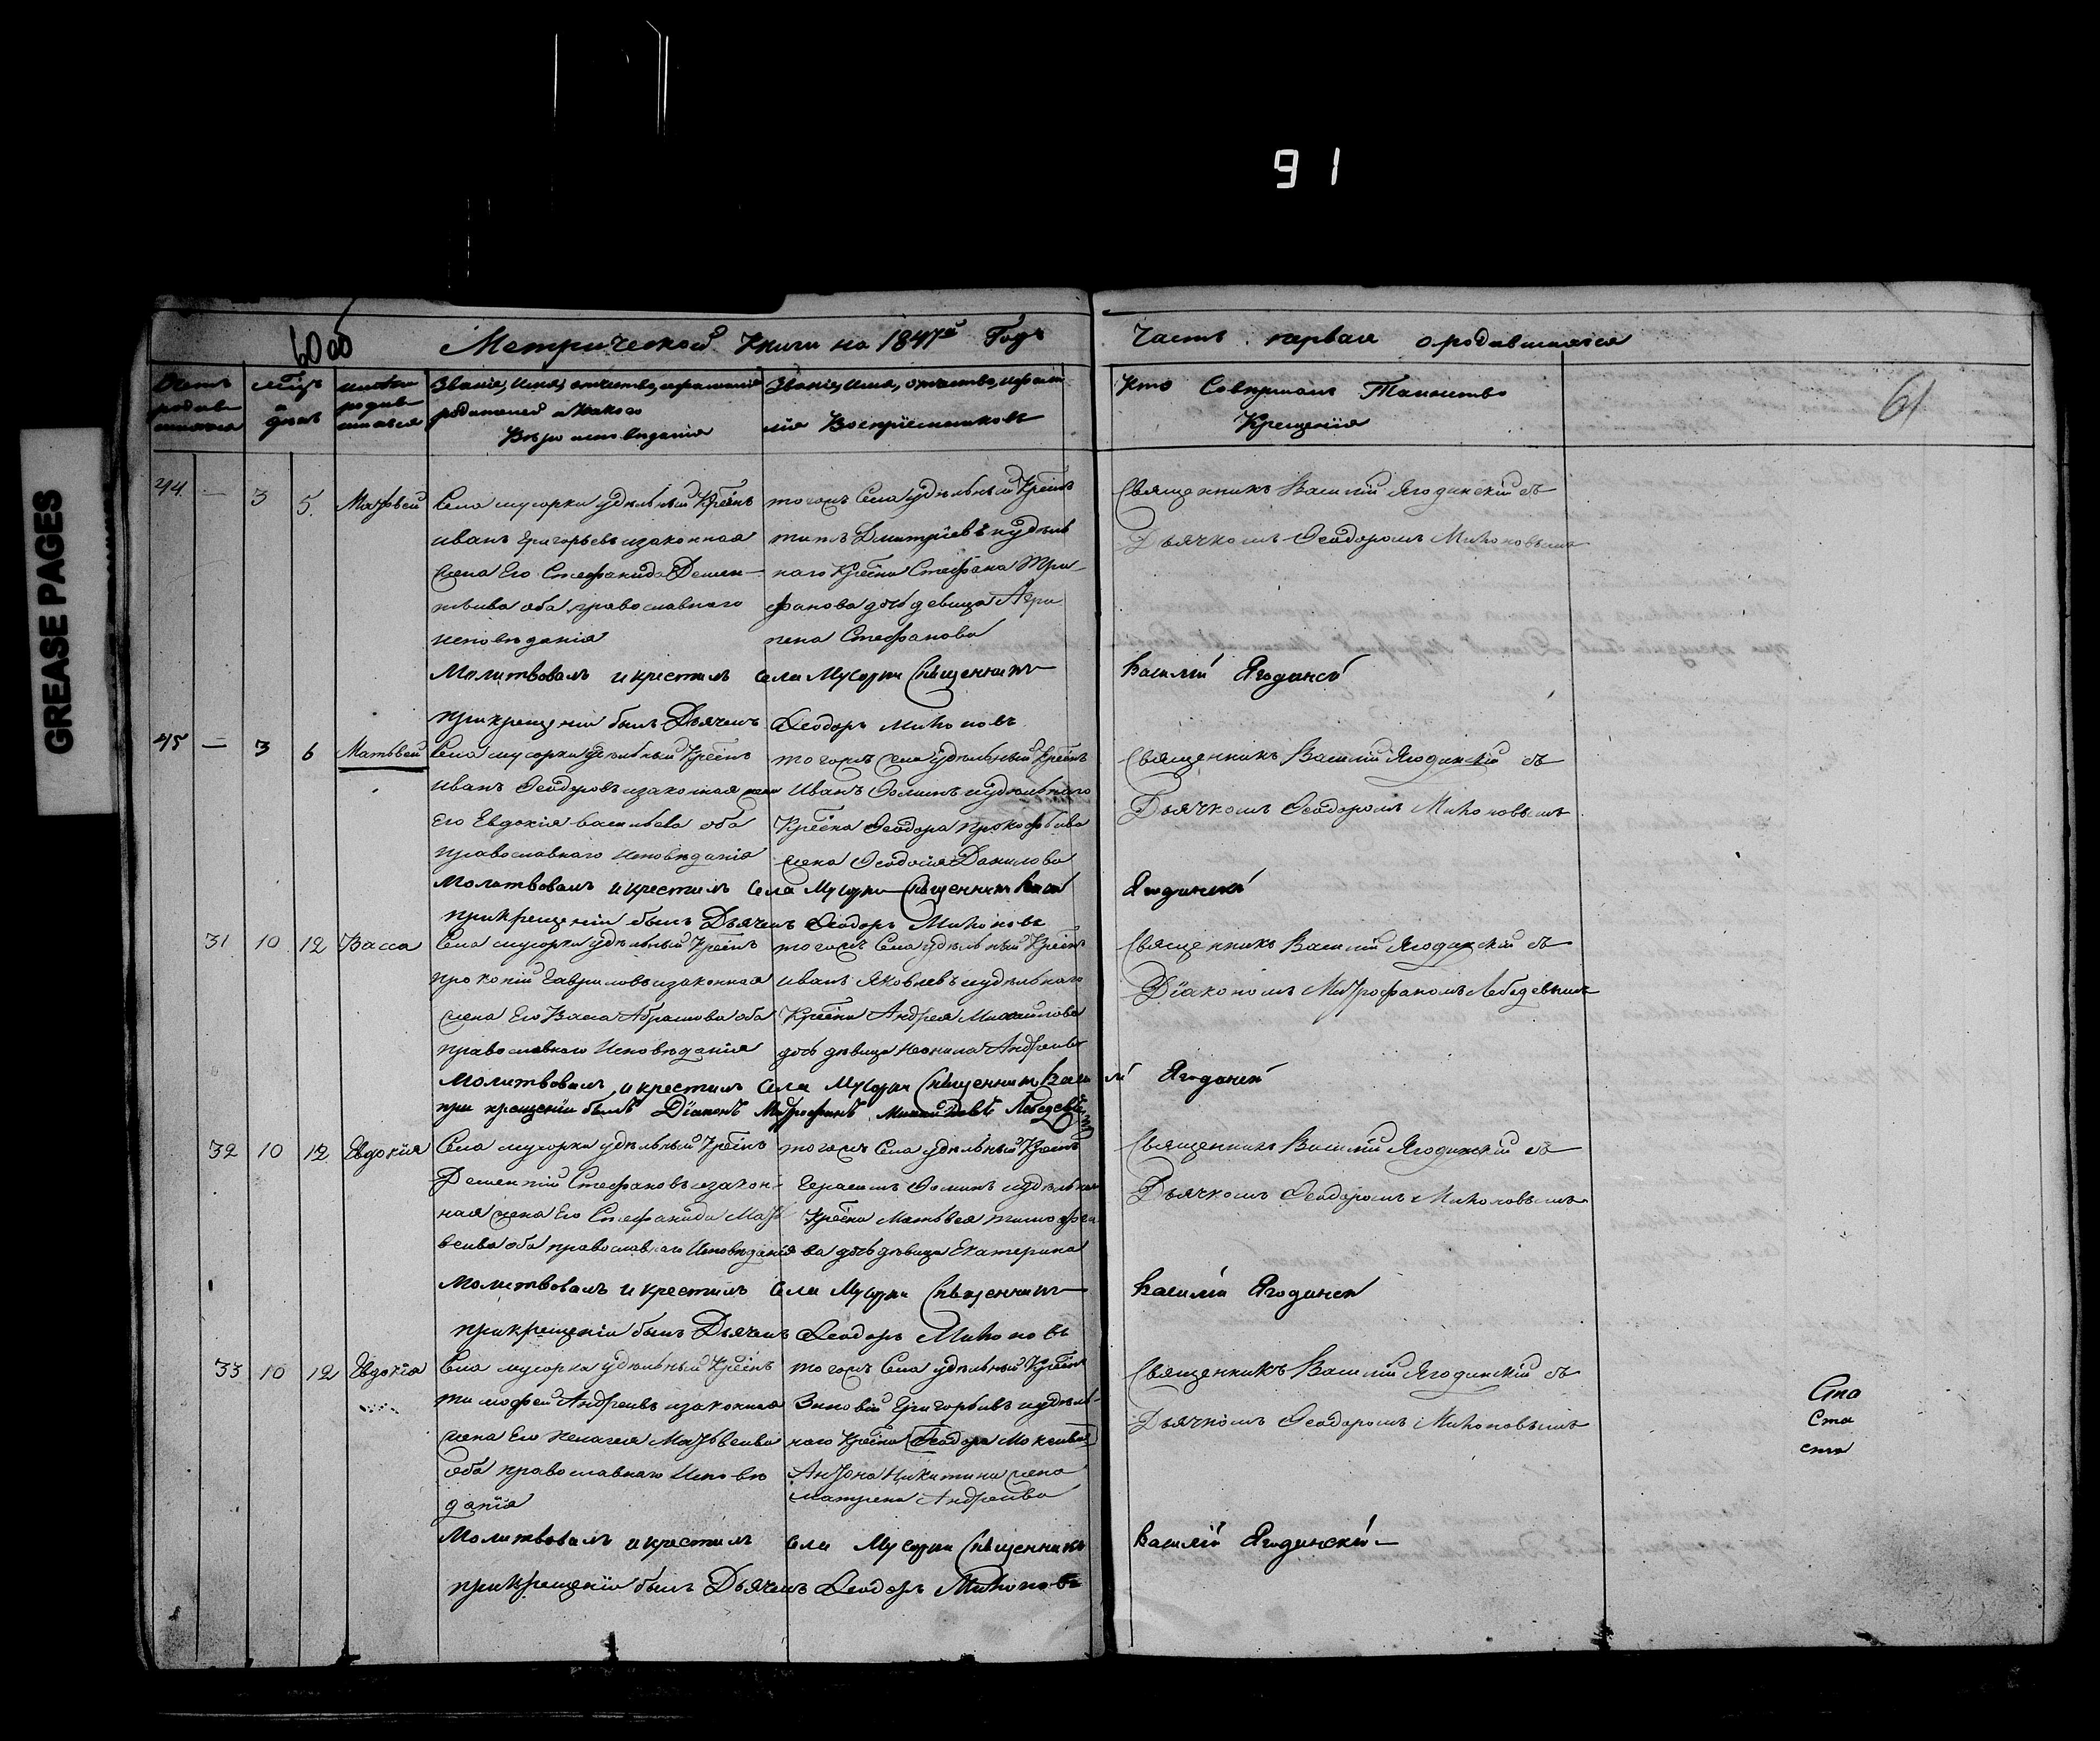 91
GREASE PAGES
60 об
Метрической Книги на 1847й Годъ
Часть первая о родившихся
61
Званіе, имя, отчество,
родителей и какого
Вѣроисповѣданія
Званіе, имя, отчество,
Воспріемниковъ
Кто Совершалъ Таинство
Крещенія
44. — 3 5. Матѳей
Села мусорки удѣльный Крестнъ
иванъ Григорьевъ изаконная
жена Его Стефанида Демен-
тьива оба православнаго
исповѣданія
тогожъ Села удѣльный Крестнъ
титъ Дмитріевъ иудѣль
наго Крестна Стефана Три-
фанова дочь девица Агри
пена Стефанова
Священникъ Василій Ягодинскій съ
Дьячкомъ Ѳеодоромъ Михоновымъ
Молитвовалъ и крестилъ Села Мусорки Священникъ Василій Ягодинскі
при крещеніи былъ Дьячекъ Ѳеодоръ Михоновъ
45 — 3 6 Матьвей
Села мусорки удѣльный Крестнъ
иванъ Ѳеодоровъ изаконная жена
Его Евдокія Васильева оба
православнаго исповѣданія
тогожъ Села удѣльный Крестнъ
Иванъ Ѳоминъ иудѣльнаго
Крестна Ѳеодора Прокофьива
жена Ѳеодосія Данилова
Священникъ Василій Ягодинскій съ
Дьячкомъ Ѳеодоромъ Михоновымъ
Молитвовалъ и крестилъ Села Мусорки Священникъ Васи Ягодинскі
при крещеніи былъ Дьячекъ Ѳеодоръ Михоновъ
31 10 12 Васса
Села мусорки удѣльный Крестнъ
прокопій Гавриловъ изаконная
жена Его Васа Абрамова оба
православнаго Исповѣданія
тогожъ Села удѣльный Крестнъ
иванъ Яковлевъ иудѣльнаго
Крестна Андрея Михайлова
дочь дѣвица Неонила Андреива
Священникъ Василій Ягодинскій съ
Діакономъ Митрофаномъ Лебедевымъ
Молитвовалъ и крестилъ Села Мусорки Священникъ Василі Ягодинскі
при крещеніи былъ Діаконъ Митрофанъ Лебедевъ
32 10 12 Евдокія
Села мусорки удѣльный Крестнъ
Дементій Стефановъ изакон-
ная жена Его Стефанида Матѳ
веива оба православнаго Исповѣданія
тогожъ Села удѣльный Крестнъ
Герасимъ Ѳоминъ иудѣльна
Крестна Матьвея тимофеи
ва дочь дѣвица Екатерина
Священникъ Василій Ягодинскій съ
Дьячкомъ Ѳеодоромъ Михоновымъ
Молитвовалъ и крестилъ Села Мусорки Священникъ Василій Ягодинскі
при крещеніи былъ Дьячекъ Ѳеодоръ Михоновъ
33 10 12 Евдокія
Села мусорка удѣльный Крестнъ
тимофей Андреивъ изаконная
жена Его пелагея Матѳвеива
оба православнаго Исповѣ
данія
тогожъ Села удѣльный Крестнъ
Зиновій Григорьивъ иудѣль-
наго Крестна Ѳеодора Мокеива
Антона Никитина жена
матрена Андреива
Священникъ Василій Ягодинскій съ
Дьячкомъ Ѳеодоромъ Михоновымъ
Сто
Ста
ста
Молитвовалъ и крестилъ Села Мусорки Священникъ Василій Ягодинскій
при крещеніи былъ Дьячекъ Ѳеодоръ Михоновъ